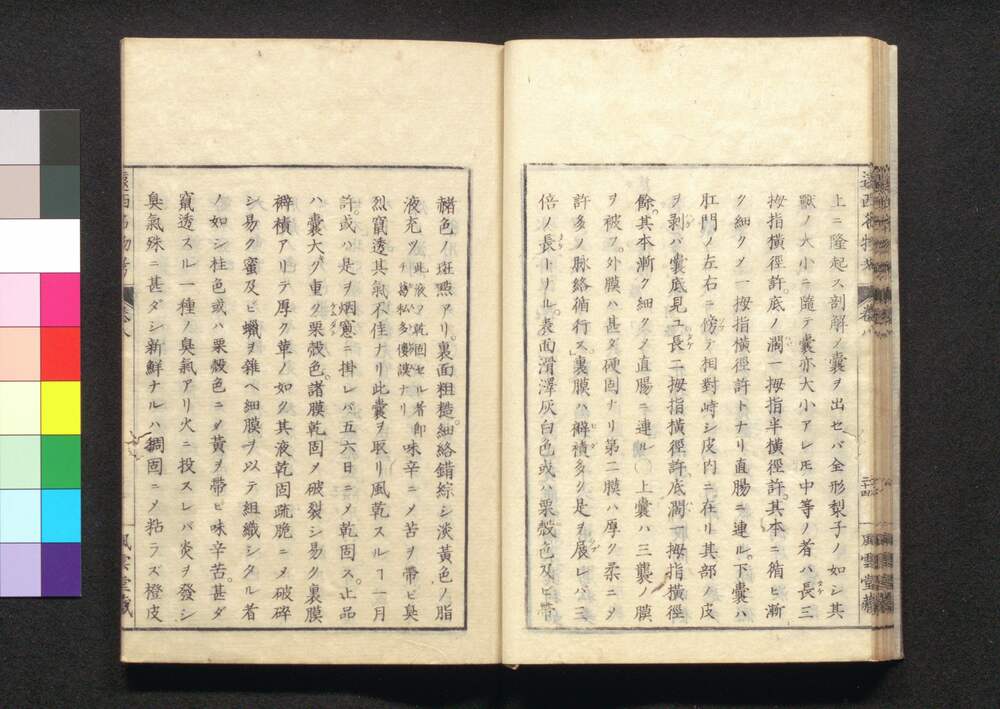 上ニ隆起ス剖解ノ囊ヲ出セバ全形梨子ノ如シ其
獸ノ大小ニ隨テ囊亦大小アレ𪜈中等ノ者ハ長三
拇指橫徑許。底ノ濶一拇指半橫徑許。其本ニ循ヒ漸
ク細クメ一拇指橫徑許トナリ直腸ニ連ル。下囊ハ
肛門ノ左右ニ傍テ相對峙シ皮内ニ在リ其部ノ皮
ヲ剥バ囊底見ユ長二拇指橫徑許。底濶一拇指橫徑
餘。其本漸ク細クメ直腸ニ連ル○上囊ハ三襲ノ膜
ヲ被フ。外膜ハ甚ダ硬固ナリ第二膜ハ厚ク柔ニメ
許多ノ脉絡循行ス。裏膜ハ襞襀多ク是ヲ展レバ三
倍ノ長トナル。表面滑澤灰白色或ハ栗殼色及ヒ帶
赭色ノ斑㸃アリ。裏面粗糙。細絡錯綜シ淡黃色ノ脂
液充ツ此液ヲ乾固セル者即チ葛私多僂謨ナリ味辛ニメ苦ヲ帶ビ臭
烈竄透其氣不佳ナリ此囊ヲ取リ風乾スルヿ一月
許。或ハ是ヲ烟窻ニ掛レバ五六日ニメ乾固ス。上品
ハ囊大。重ク栗殼色。諸膜乾固メ破裂シ易ク裏膜
襞積アリテ厚ク革ノ如ク其液乾固疏脆ニメ破碎
シ易ク蜜及ビ蠟ヲ雜ヘ細膜ヲ以テ組織シタル者
ノ如シ桂色或ハ栗殼色ニメ黃ヲ帶ヒ味辛苦。甚ダ
竄透スル一種ノ臭氣アリ火ニ投スレバ炎ヲ發シ
臭氣殊ニ甚ダシ新鮮ナルハ稠固ニメ粘ラズ橙皮